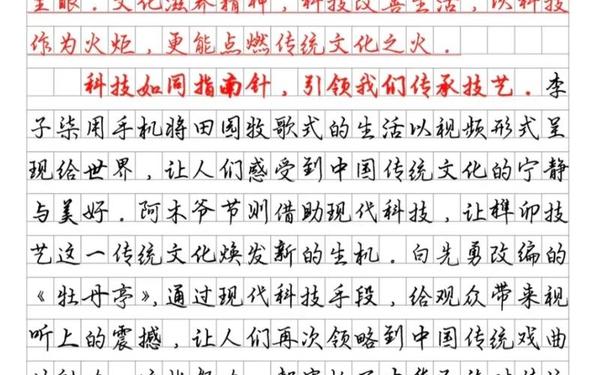 眼．文化滋养精神，科技改善生活，以科技
作为火炬，更能点燃传统文化之火．
科技如同指南针，引领我们传承技艺．李
子柒用手机将田园牧歌式的生活以视频形式呈
现给世界，让人们感受到中国传统文化的宁静
与美好．阿木爷爷则借助现代科技，让榫卯技
艺这一传统文化焕发新的生机．白先勇改编的
《牡丹亭》，通过现代科技手段，给观众带来视
听上的震撼，让人们再次领略到中国传统戏曲